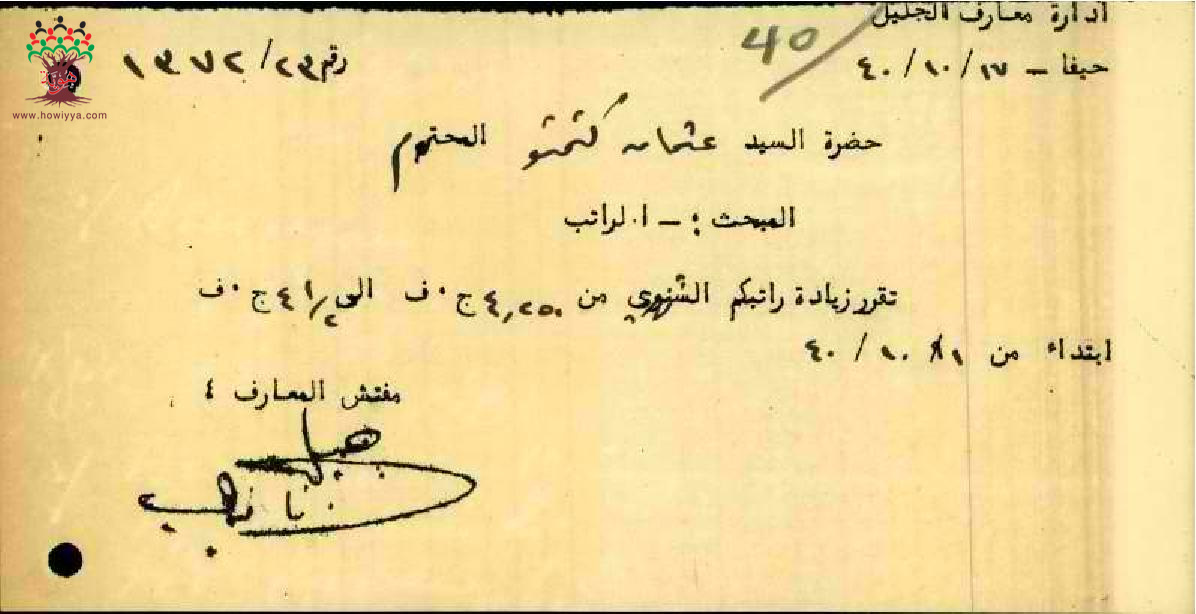 ادارة معارف الجليل
40
حيفا – ١٧/١٠/٤٠
رقم ٢٣/١٣٧٢
www.howiyya.com
حضرة السيد عثمان المحترم
المبحث :– الراتب
تقرر زيادة راتبكم الشهري من ٤,٢٥٠ ج.ف الى ٤ ١/٢ ج.ف
ابتداء من ١/١٠/٤٠
مفتش المعارف